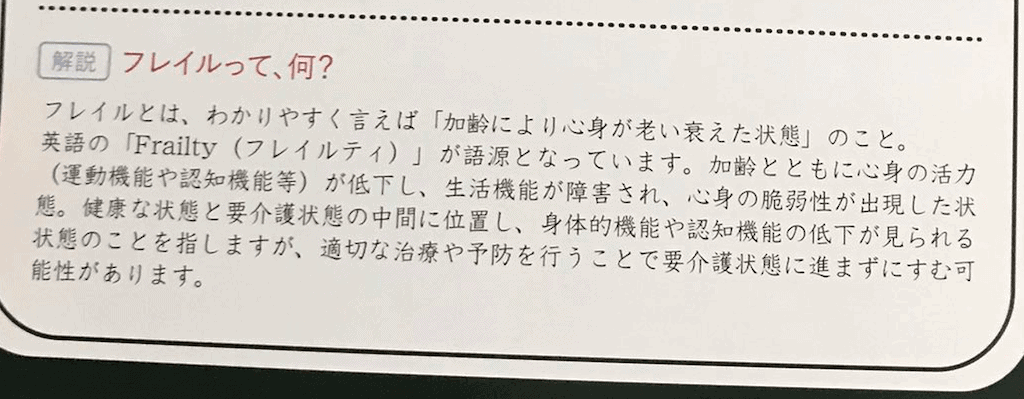 解説 フレイルって、何?
フレイルとは、わかりやすく言えば「加齢により心身が老い衰えた状態」のこと。
英語の「Frailty(フレイルティ)」が語源となっています。加齢とともに心身の活力
(運動機能や認知機能等)が低下し、生活機能が障害され、心身の脆弱性が出現した状
態。健康な状態と要介護状態の中間に位置し、身体的機能や認知機能の低下が見られる
状態のことを指しますが、適切な治療や予防を行うことで要介護状態に進まずにすむ可
能性があります。